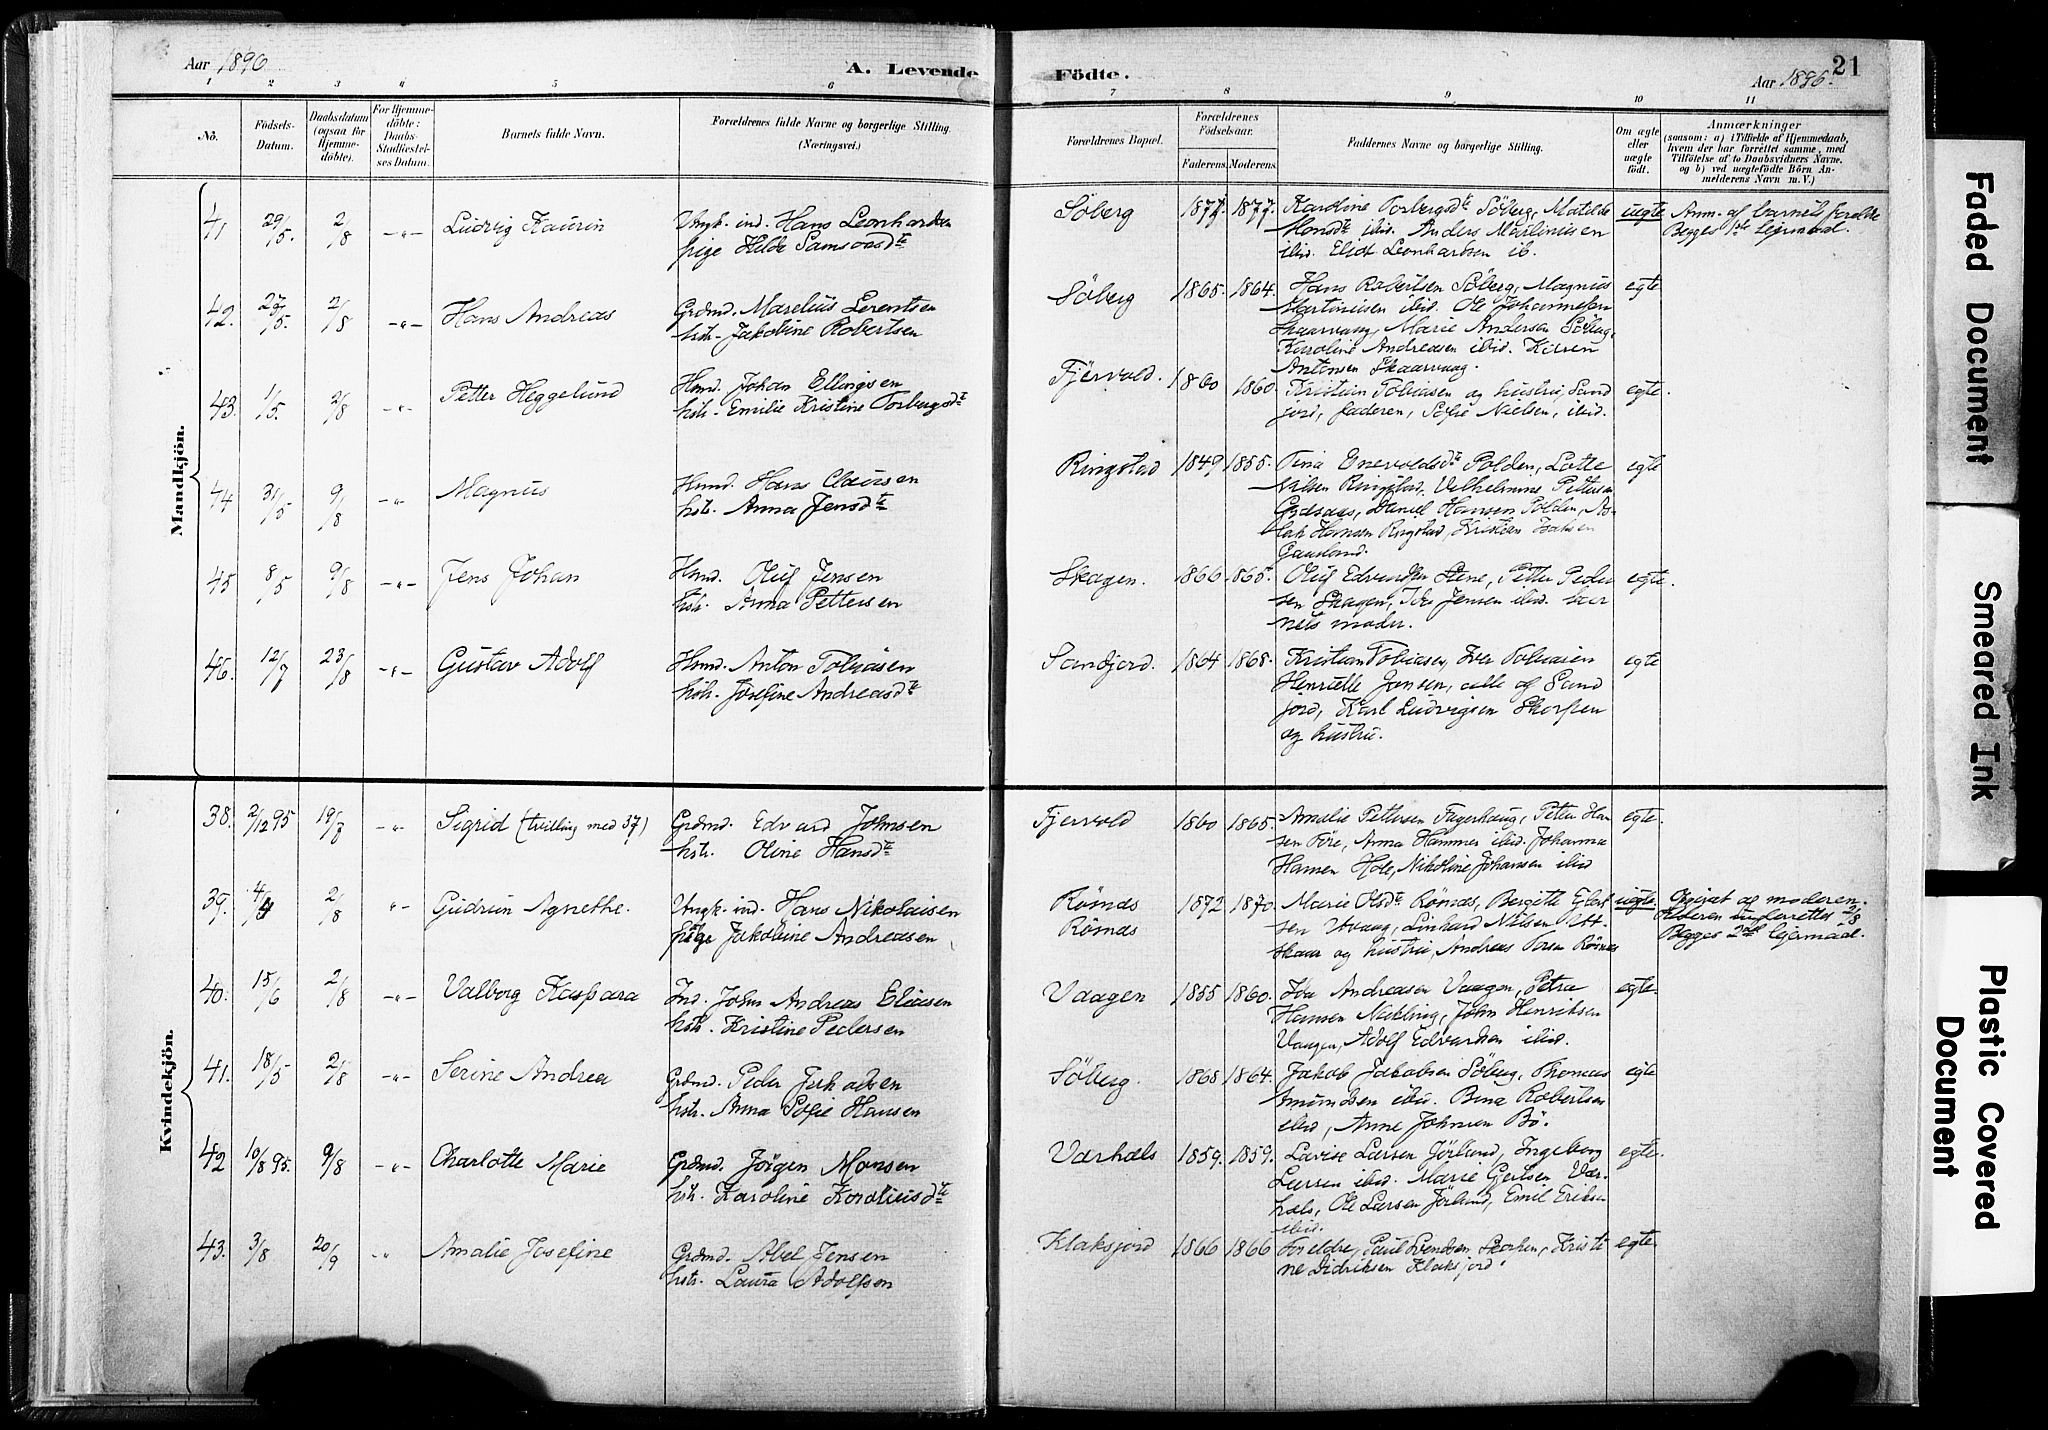 Aar 1896
A. Levende
Födte.
21
Aar 1896.
1 2 3 4 5 6 7 8 9 10 11
No.
Födsels-
Datum.
Daabsdatum
(ogsaa for
Hjemme-
döbte).
For Hjemme-
döbte:
Daabs-
Stadfæstel-
ses Datum.
Barnets fulde Navn.
Forældrenes fulde Navne og borgerlige Stilling.
(Næringsvei.)
Forældrenes Bopæl.
Forældrenes
Födselsaar.
Faderens. Moderens.
Faddernes Navne og borgerlige Stilling.
Om ægte
eller
uægte
födt.
Anmærkninger
(saasom: a) i Tilfælde af Hjemmedaab,
hvem der har forrettet samme, med
Tilföielse af to Daabsvidners Navne,
og b) ved uægtefödte Börn An-
melderens Navn m. V.)
Mandkjön.
41 29/5. 2/8 -"- Ludvig Kaurin
Ungk. ind. Hans Leonhardsen
pige Hilda Samsonsdte
Söberg 1877. 1877. Karoline Torbergsdte Söberg, Matilde
Monsdte ibid. Anders Martinusen
ibid. Elida Leonhardsen ib.
uegte Anm. af barnets forældre
Begges 1ste lejermaal.
42. 27/5. 2/8 -"- Hans Andreas
Grdmd. Marelius Lorentsen
hstr. Jakobine Robertsen
Söberg 1865. 1864. Hans Robertsen Söberg, Magnus
Martinusen ibid. Ole Johannesen
Skaarvaag, Marie Andersen Söberg,
Karoline Andreasen ibid. Karen
Antonsen Skaarvaag.
egte
43. 1/5. 2/8 -"- Petter Heggelund
Hmd. Johan Ellingsen
hstr. Emilie Kristine Torbergsdte
Fjervold. 1860 1860. Kristian Tobiasen og hustru, Sand
jord, faderen, Sofie Nielsen, ibid.
egte.
44 31/5 9/8 -"- Magnus
Hmd. Hans Clausen
hstr. Anna Jensdte
Ringstad 1849 1855. Tina Enevoldsdte Polden, Lotte
Nilsen Ringstad, Vilhelmine Pettersen
Grdsaas, Daniel Hansen Polden, As-
lak Hansen Ringstad, Kristian Isaksen
Gaasland.
egte
45 8/5 9/8 -"- Jens Johan
Hmd. Oluf Jensen
hstr. Anna Pettersen
Skagen. 1866 1865. Oluf Edvardsen Stene, Petter Peder
sen Skagen, Ida Jensen ibid. bar
nets moder.
egte.
46. 12/7 23/8 -"- Gustav Adolf
Hmd. Anton Tobiasen
hstr. Josefine Andreasdte
Sandjord. 1864 1868. Kristian Tobiasen, Iver Tobiasen
Henriette Jansen, alle af Sand
jord, Karl Ludvigsen Skorpen
og hustru.
egte
Kvindekjön.
38. 2/12 95 19/7 -"- Sigrid (tvilling med 37)
Grdmd. Edvard Johnsen
hstr. Oline Hansdte
Fjervold 1860 1865. Amalie Pettersen Fagerhaug, Petter Han
senFöre, Anna Hammer ibid. Johanna
Hansen Hole, Nikoline Johansen ibid
egte.
39. 4/4 2/8 "- Gudrun Agnethe.
Ungk. ind. Hans Nikolaisen
pige Jakobine Andreasen
Römnes
Römnes
1872 1870. Marie Olsdte Römnes, Bergitte
sen Utvaag, Linhard Nilsen Ut-
skaar og hustru, Andreas Torsen Römnes
uegte. Opgivet af moderen.
Faderen underrettet 2/8
Begges 2det lejermaal.
40. 15/6 2/8 -"- Valborg Kaspara
Ind. John Andreas Eliasen
hstr. Kristine Pedersen
Vaagen 1855 1860. Ida Andreasen Vaagen, Petra
Hansen Nykling, John Henriksen
Vaagen, Adolf Edvardsen ibid.
egte.
41. 18/5 2/8 -"- Serine Andrea
Grdmd. Peder Jakobsen
hstr. Anna Sofie Hansen
Söberg. 1868 1864. Jakob Jakobsen Söberg, Thomas
Amundsen ibid. Bina Robertsen
ibid, Anne Johnsen Bö.
egte
42 10/8 95. 9/8 -"- Charlotte Marie
Grdmd. Jörgen Monsen
hstr. Karoline Korneliusdte
Værhals 1859. 1859. Lovise Larsen Jörlund, Ingeborg
Larsen ibid. Marie Gertsen Vær-
hals, Ole Larsen Jörlund, Emil Eriksen
ibid.
egte.
43. 3/8 20/9 "- Amalie Josefine
Grdmd. Abel Jensen
hstr. Laura Adolfsen
Klaksjord 1866 1866 Foreldre, Paul Svendsen Skorpen, Kristi
ne Didriksen Klaksjord.
egte.
Faded Document
Smeared Ink
Plastic Covered
Document